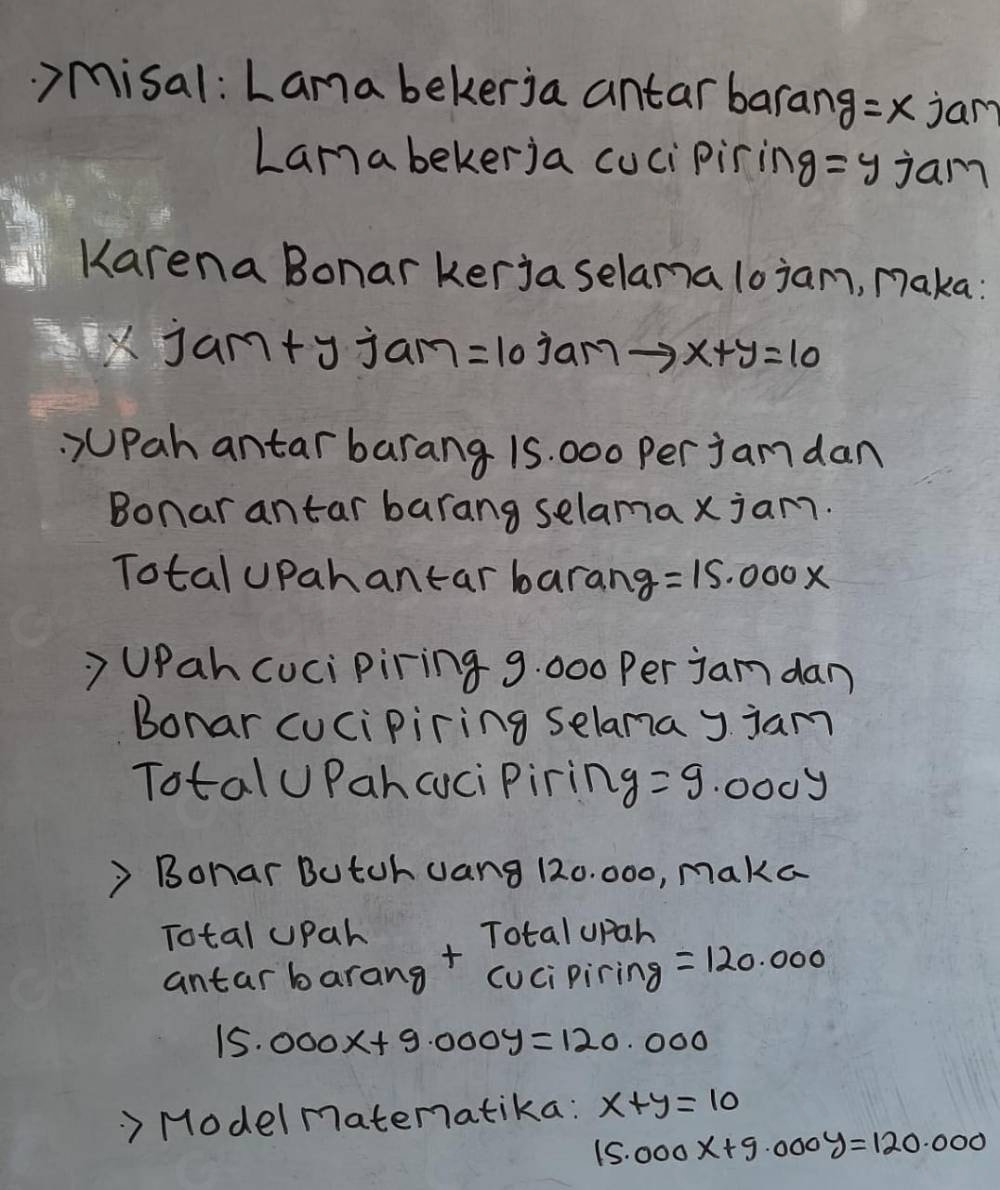 ·> Misal: Lama bekerja antar barang = x jam
Lama bekerja cuci piring = y jam
Karena Bonar kerja selama 10 jam, maka:
x jam + y jam = 10 jam → x+y=10
·> Upah antar barang 15.000 per jam dan
Bonar antar barang selama x jam.
Total upah antar barang = 15.000x
·> Upah cuci piring 9.000 per jam dan
Bonar cuci piring selama y jam
Total upah cuci piring = 9.000y
·> Bonar Butuh uang 120.000, maka
Total upah antar barang + Total upah cuci piring = 120.000
15.000x + 9.000y = 120.000
·> Model matematika: x+y = 10
15.000x + 9.000y = 120.000